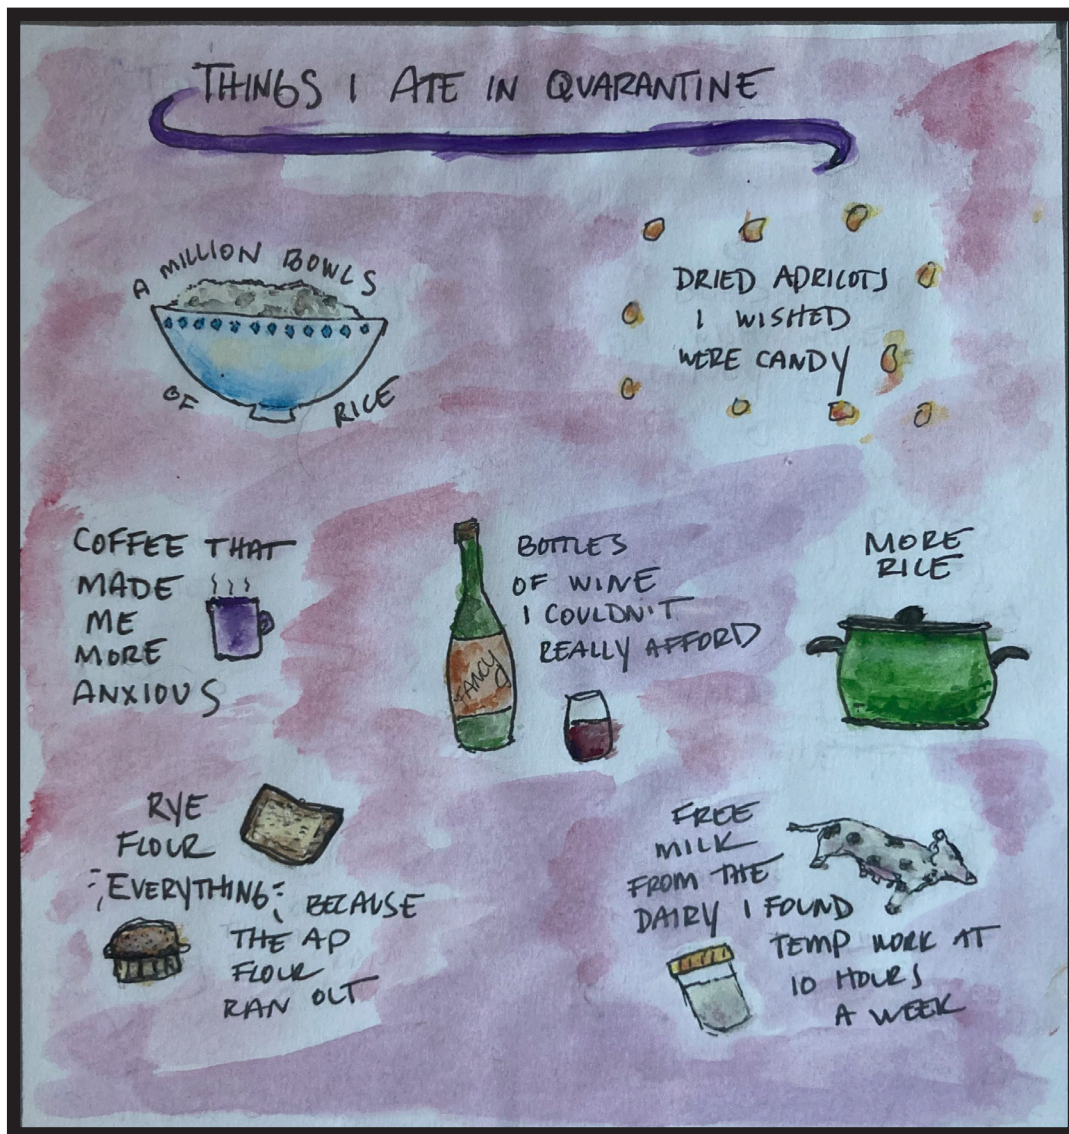 THINGS I ATE IN QUARANTINE
A MILLION BOWLS
OF RICE
DRIED APRICOTS
I WISHED
WERE CANDY
COFFEE THAT
MADE
ME
MORE
ANXIOUS
BOTTLES
OF WINE
I COULDN'T
REALLY AFFORD
FANCY
MORE
RICE
RYE
FLOUR
EVERYTHING BECAUSE
THE AP
FLOUR
RAN OUT
FREE
MILK
FROM THE
DAIRY I FOUND
TEMP WORK AT
10 HOURS
A WEEK